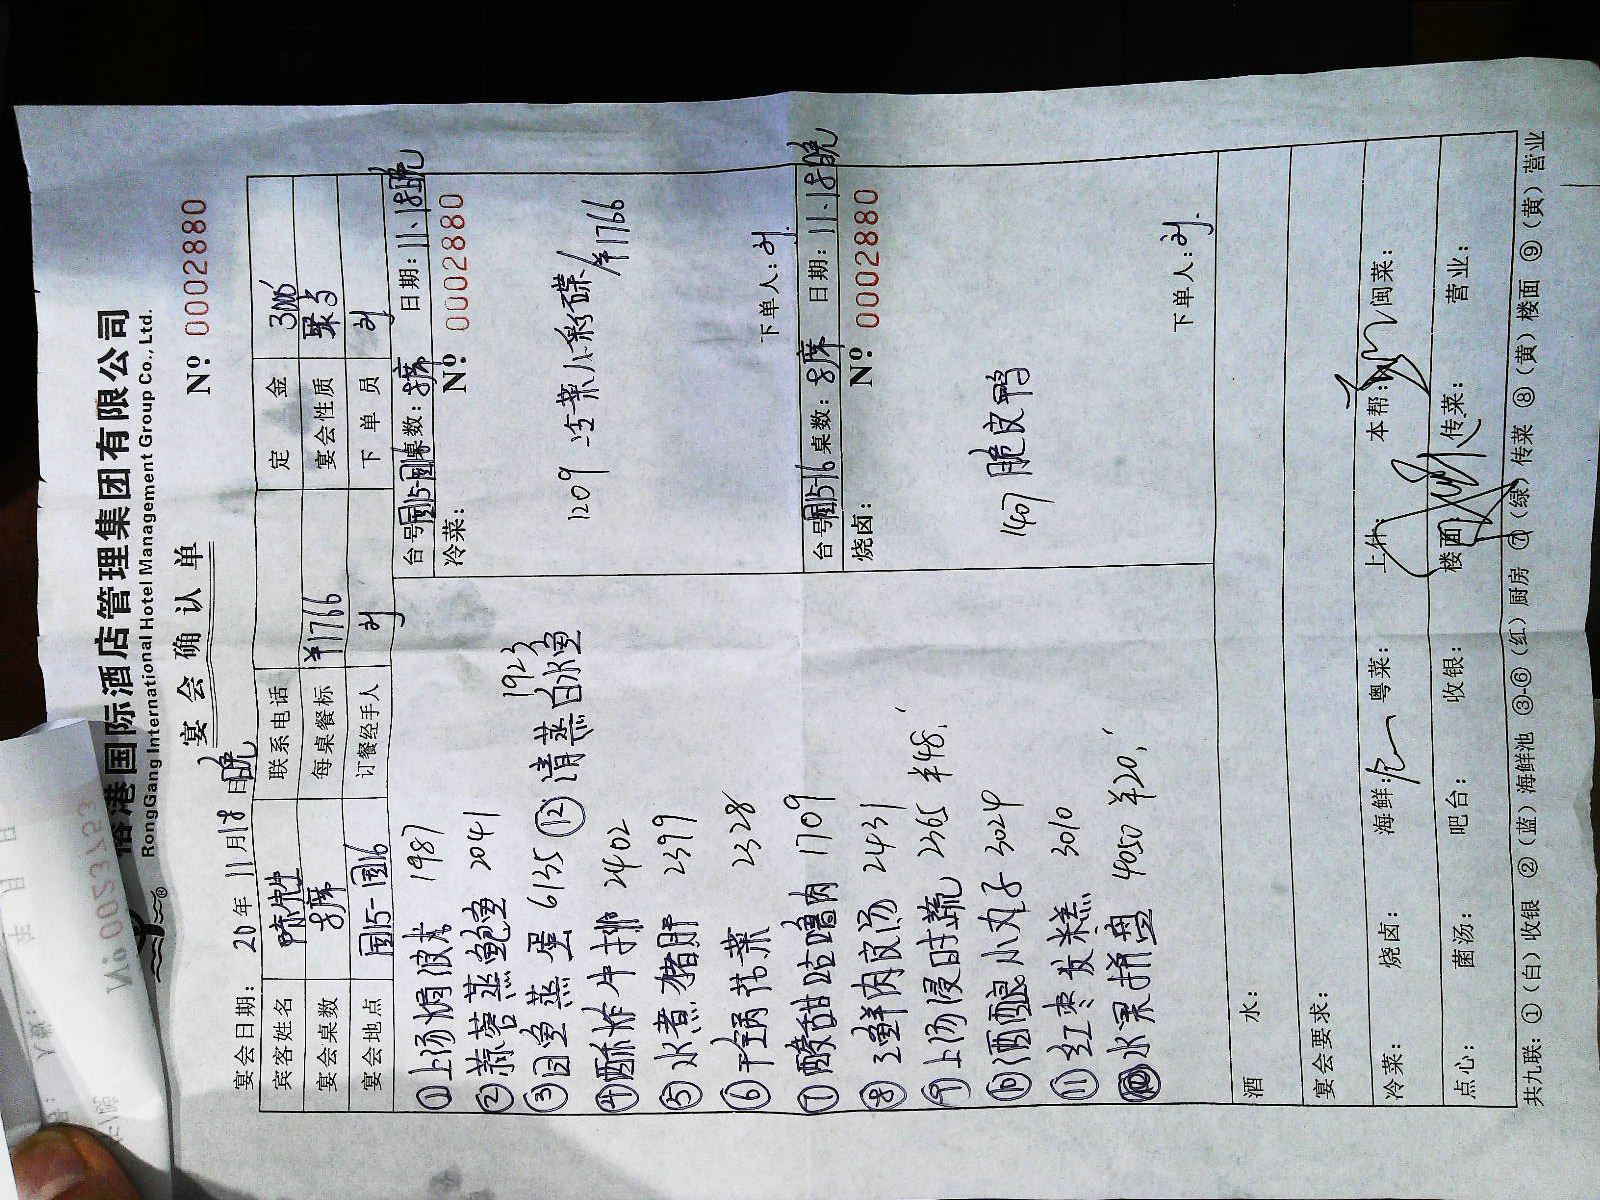 国际酒店管理集团有限公司
RongGang International Hotel Management Group Co., Ltd.
宴会确认单
№: 0002880
宴会日期: 20 年 11 月 18 日 晚
宾客姓名 陈先生 联系电话 定金 3000
宴会桌数 8席 每桌餐标 ¥1766 宴会性质
宴会地点 国15-国16 订餐经手人 刘 下单员 刘
① 上汤焗波士 1987
② 蒜蓉蒸鲍鱼 2041
③ 目鱼蒸蛋 6135
⑫ 清蒸白水鱼 1923
④ 酥炸牛排 2402
⑤ 水煮猪肝 2399
⑥ 干锅花菜 2328
⑦ 酸甜咕噜肉 1709
⑧ 三鲜肉皮汤 2431
⑨ 上汤浸时蔬 2365 ¥48.
⑩ 酒酿小丸子 3024
⑪ 红枣发糕 3010
水果拼盘 4050 ¥20.
台号 国15-国16 桌数: 8席 日期: 11.18晚
冷菜: №: 0002880
1209 冷菜八彩碟 ¥1766
下单人: 刘.
台号 国15-16 桌数: 8席 日期: 11.18晚
烧卤: №: 0002880
1407 脆皮鸭
下单人: 刘.
酒水:
宴会要求:
冷菜: 烧卤: 海鲜: 粤菜: 上什: 本帮: 闽菜:
点心: 菌汤: 吧台: 收银: 楼面: 传菜: 营业:
共九联: ①(白)收银 ②(蓝)海鲜池 ③-⑥(红)厨房 ⑦(绿)传菜 ⑧(黄)楼面 ⑨(黄)营业
№ 0023763
年 月 日